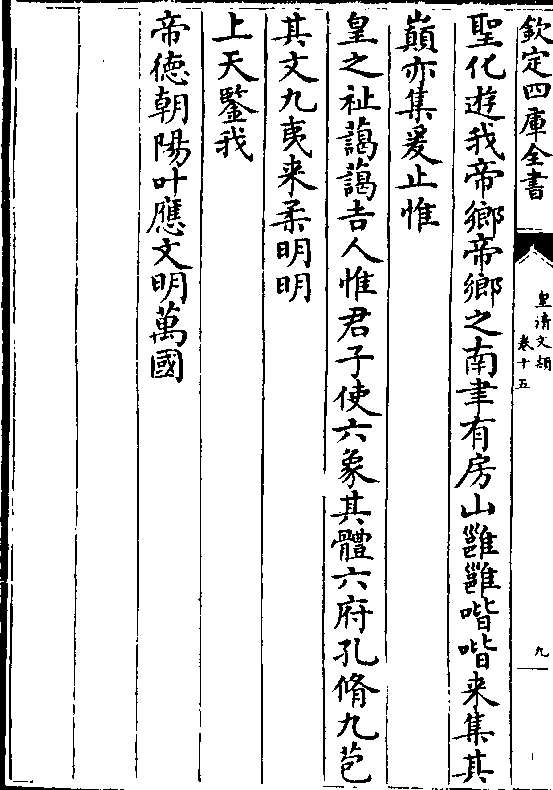 欽定四庫全書
皇清文穎
卷十五
九
聖化遊我帝鄉帝鄉之南聿有房山雝雝喈喈来集其
巔亦集爰止惟
皇之祉藹藹吉人惟君子使六象其體六府孔脩九苞
其文九夷来柔明明
上天鑒我
帝德朝陽叶應文明萬國